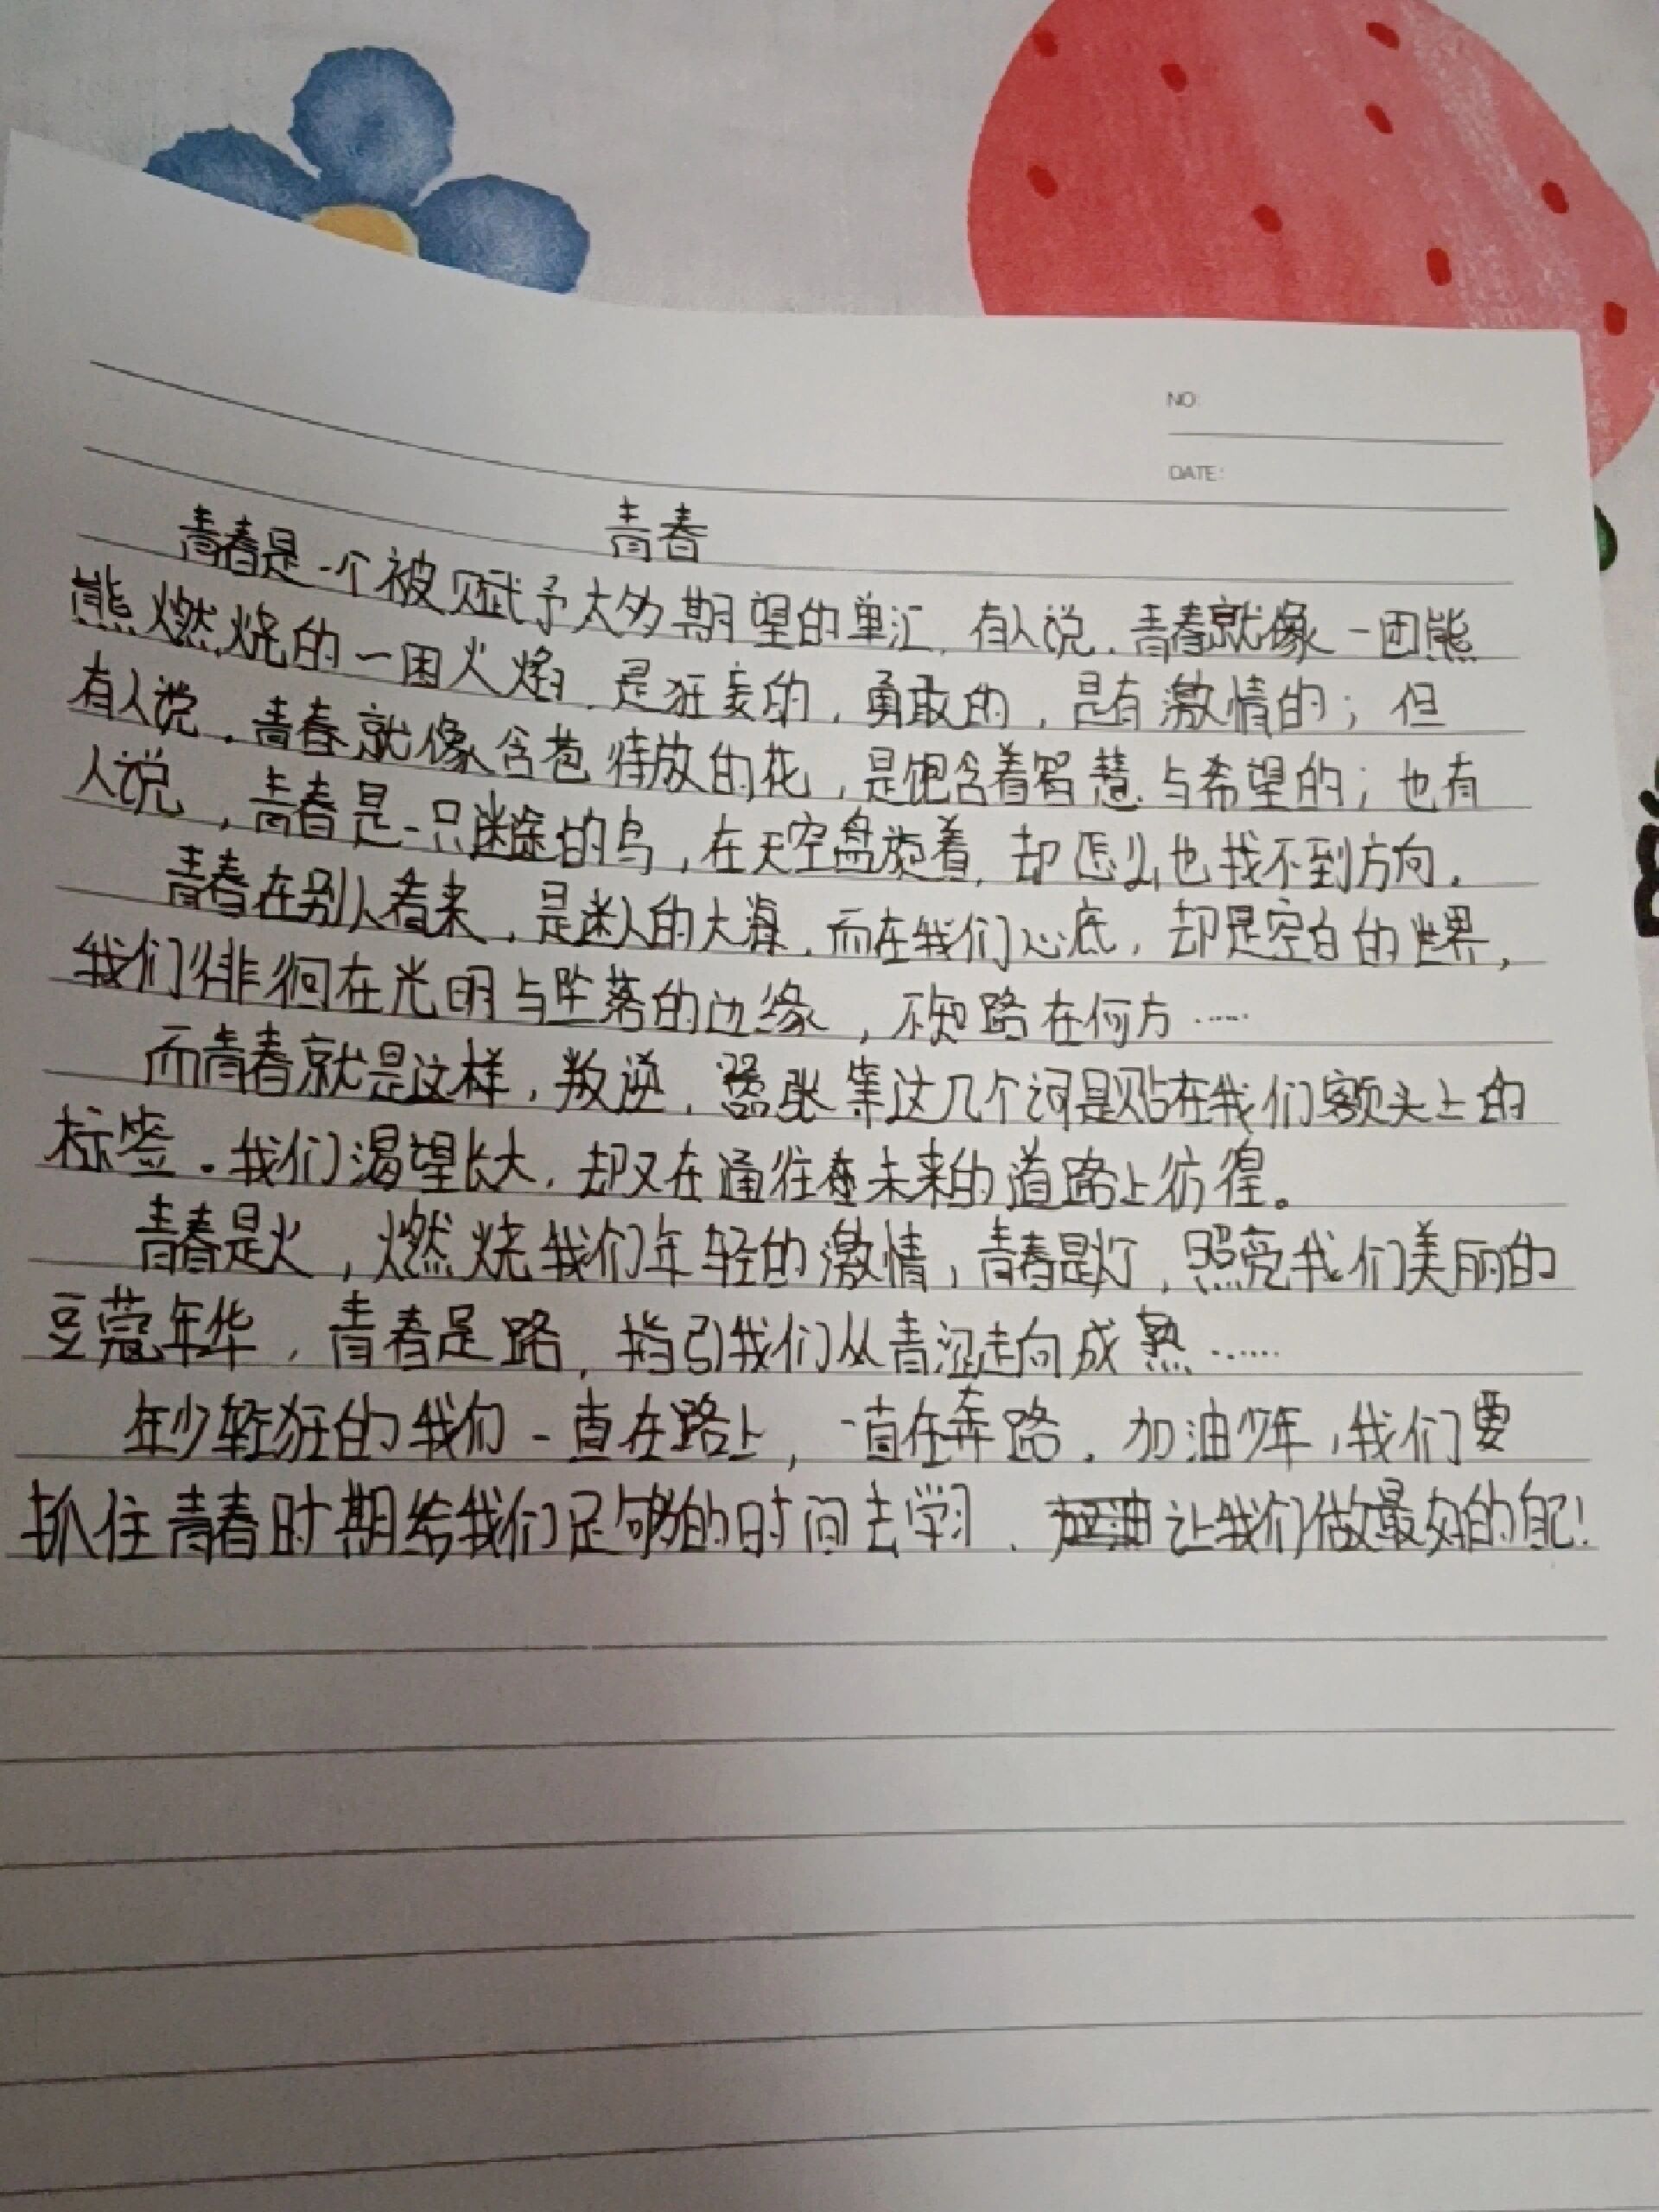 NO:
DATE:
青春
青春是一个被赋予太多期望的单汇，有人说，青春就像一团熊
熊燃烧的一团火焰，是狂妄的，勇敢的，是有激情的；但
有人说，青春就像含苞待放的花，是饱含着智慧与希望的；也有
人说，青春是一只迷途的鸟，在天空盘旋着，却怎么也找不到方向。
青春在别人看来，是迷人的大海，而在我们心底，却是空白的世界，
我们徘徊在光明与坠落的边缘，不知路在何方……
而青春就是这样，叛逆，嚣张等这几个词是贴在我们额头上的
标签。我们渴望长大，却又在通往未来的道路上彷徨。
青春是火，燃烧我们年轻的激情，青春是灯，照亮我们美丽的
豆蔻年华，青春是路，指引我们从青涩走向成熟……
年少轻狂的我们一直在路上，一直在奔路，加油少年，我们要
抓住青春时期给我们足够的时间去学习，让我们做最好的自己！